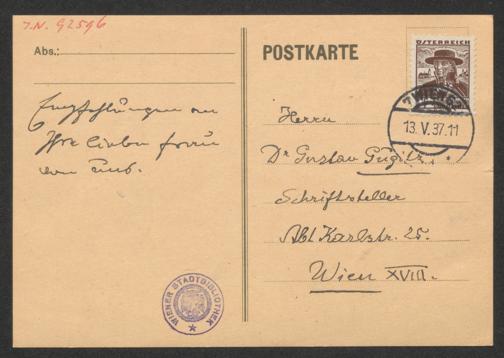 I.N. 92596
Abs.:
Empfehlungen an
Ihre lieben Frau
von uns.
WIENER STADTBIBLIOTHEK
POSTKARTE
ÖSTERREICH
WIEN
13. V. 37. 11
Herrn
Dr Gustav Gugitz
Schriftsteller
Abt Karlstr. 25.
Wien XVIII.